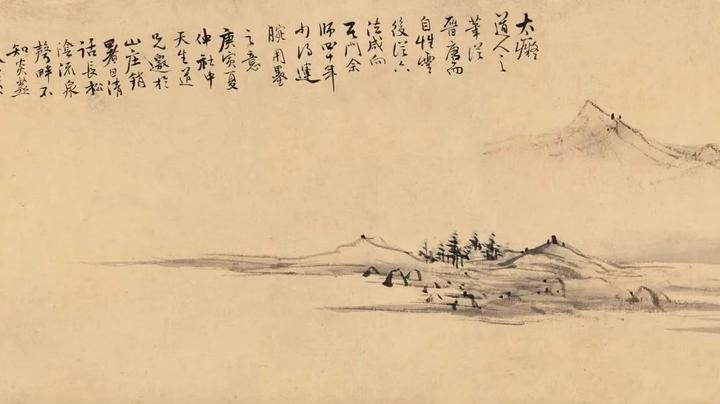 大癡
道人之
筆從
晉唐而
自性靈
後從六
法咸向
其門余
師四十年
少得運
腕用墨
之意
庚寅夏
伸社中
天生道
兄邀於
山庄銷
暑日清
話長松
陰流泉
聲畔不
知炎蒸